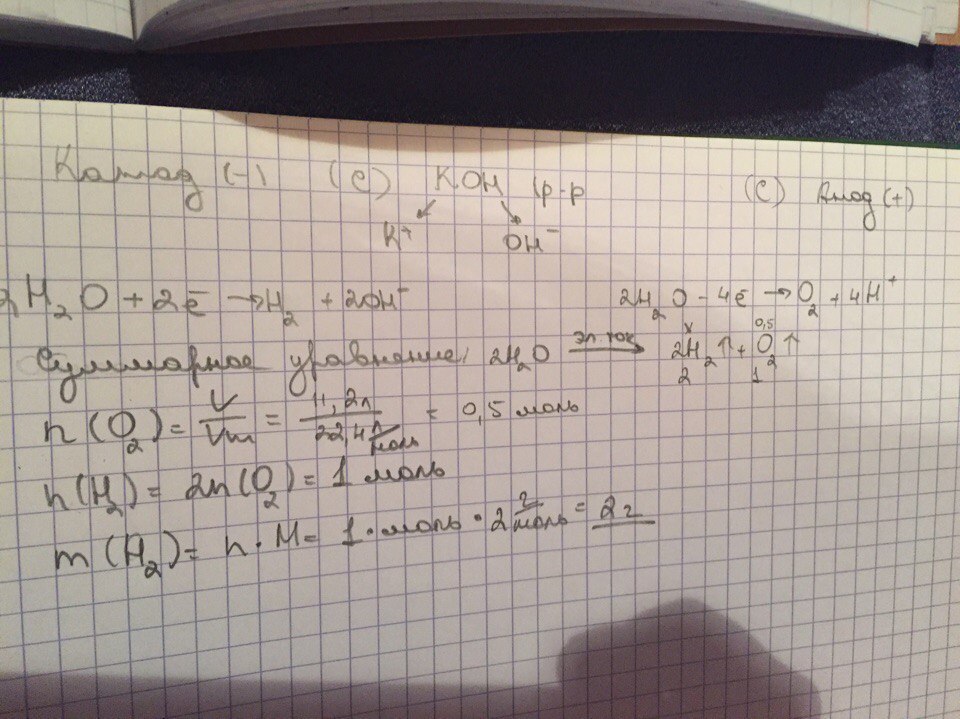 Катод (-) (C) KOH (р-р (C) Анод (+)
K⁺ OH⁻
2H₂O + 2ē → H₂ + 2OH⁻ 2H₂O - 4ē → O₂ + 4H⁺
x 0,5
Суммарное уравнение: 2H₂O эл. ток → 2H₂↑ + O₂↑
2 1
n(O₂) = V/Vm = 11,2л / 22,4 л/моль = 0,5 моль
n(H₂) = 2n(O₂) = 1 моль
m(H₂) = n · M = 1 · моль · 2 г/моль = 2г